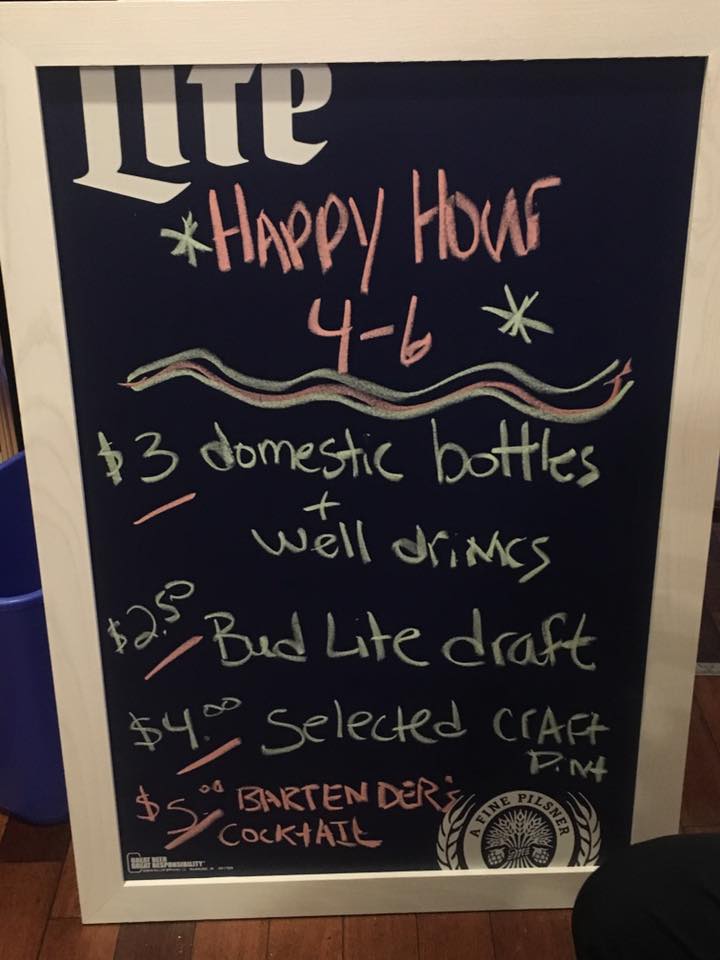 Lite
*HAPPY HOUR
4-6 *
$3 domestic bottles
+
well drinks
$2.50 Bud Lite draft
$4.00 Selected CRAFT
PiNt
$5.00 BARTENDER's
COCKTAIL
A FINE PILSNER
GREAT BEER
GREAT RESPONSIBILITY